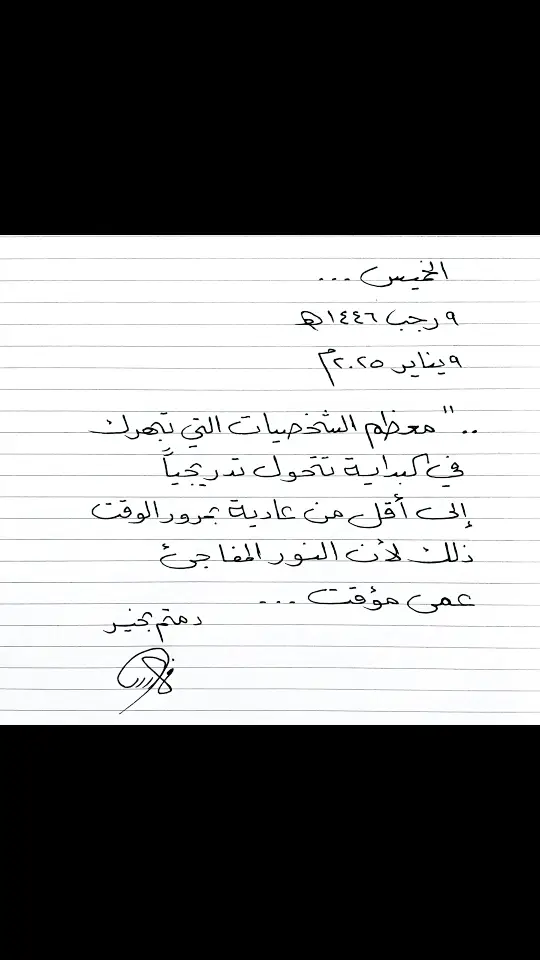 الخميس ...
٩ رجب ١٤٤٦هـ
٩ يناير ٢٠٢٥م
.." معظم الشخصيات التي تبهرك
في البداية تتحول تدريجياً
إلى أقل من عادية بمرور الوقت
ذلك لأن النور المفاجئ
عمى مؤقت ...
دمتم بخير